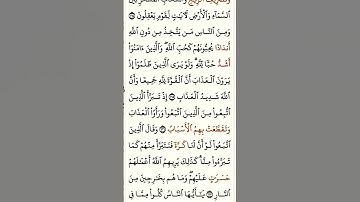 وَتَصْرِيفِ ٱلرِّيَٰحِ وَٱلسَّحَابِ ٱلْمُسَخَّرِ بَيْنَ
ٱلسَّمَآءِ وَٱلْأَرْضِ لَءَايَٰتٍ لِّقَوْمٍ يَعْقِلُونَ ١٦٤
وَمِنَ ٱلنَّاسِ مَن يَتَّخِذُ مِن دُونِ ٱللَّهِ
أَندَادًا يُحِبُّونَهُمْ كَحُبِّ ٱللَّهِ ۖ وَٱلَّذِينَ ءَامَنُوٓا۟
أَشَدُّ حُبًّا لِّلَّهِ ۗ وَلَوْ يَرَى ٱلَّذِينَ ظَلَمُوٓا۟ إِذْ
يَرَوْنَ ٱلْعَذَابَ أَنَّ ٱلْقُوَّةَ لِلَّهِ جَمِيعًا وَأَنَّ
ٱللَّهَ شَدِيدُ ٱلْعَذَابِ ١٦٥ إِذْ تَبَرَّأَ ٱلَّذِينَ
ٱتُّبِعُوا۟ مِنَ ٱلَّذِينَ ٱتَّبَعُوا۟ وَرَأَوُا۟ ٱلْعَذَابَ
وَتَقَطَّعَتْ بِهِمُ ٱلْأَسْبَابُ ١٦٦ وَقَالَ ٱلَّذِينَ
ٱتَّبَعُوا۟ لَوْ أَنَّ لَنَا كَرَّةً فَنَتَبَرَّأَ مِنْهُمْ كَمَا
تَبَرَّءُوا۟ مِنَّا ۗ كَذَٰلِكَ يُرِيهِمُ ٱللَّهُ أَعْمَٰلَهُمْ
حَسَرَٰتٍ عَلَيْهِمْ ۖ وَمَا هُم بِخَٰرِجِينَ مِنَ
ٱلنَّارِ ١٦٧ يَٰٓأَيُّهَا ٱلنَّاسُ كُلُوا۟ مِمَّا فِى